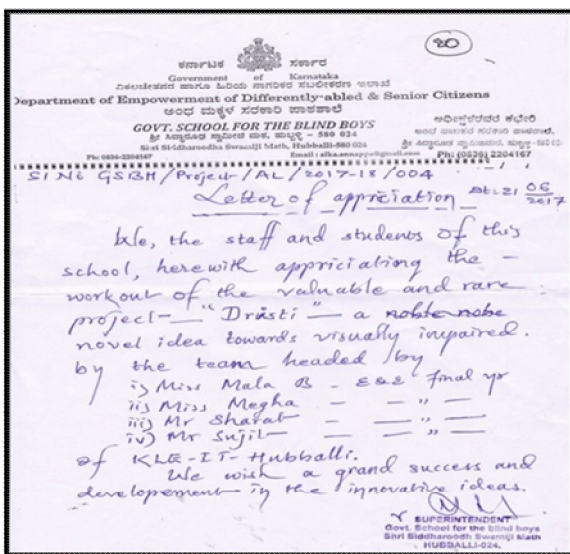 ೪೦
ಕರ್ನಾಟಕ ಸರ್ಕಾರ
Government of Karnataka
ವಿಕಲಚೇತನರ ಹಾಗೂ ಹಿರಿಯ ನಾಗರಿಕರ ಸಬಲೀಕರಣ ಇಲಾಖೆ
Department of Empowerment of Differently-abled & Senior Citizens
ಅಂಧ ಮಕ್ಕಳ ಸರಕಾರಿ ಪಾಠಶಾಲೆ
GOVT. SCHOOL FOR THE BLIND BOYS
ಶ್ರೀ ಸಿದ್ಧಾರೂಢ ಸ್ವಾಮೀಜಿ ಮಠ, ಹುಬ್ಬಳ್ಳಿ - 580 024
Shri Siddharoodha Swamiji Math, Hubballi-580 024
Ph: 0836-2204167
Email : alka.annappa@gmail.com
ಅಧೀಕ್ಷಕರವರ ಕಛೇರಿ
ಅಂಧ ಬಾಲಕರ ಸರಕಾರಿ ಪಾಠಶಾಲೆ,
Ph: (0836) 2204167
Sl No GSBH/Project/AL/2017-18/004
Dt: 21 06 2017
Letter of appriciation
We, the staff and students of this
school, herewith appriciating the -
workout of the valuable and rare
project- "Drusti" - a noble nobe
novel idea towards visually impaired.
by the team headed by
i) Miss Mala B - E&E final yr
ii) Miss Megha - " -
iii) Mr Sharat - - " -
iv) Mr Sujit - - " -
of KLE-IT-Hubballi.
We wish a grand success and
developement in the innovative ideas.
SUPERINTENDENT
Govt. School for the blind boys
Shri Siddharoodh Swamiji Math
HUBBALLI-024.